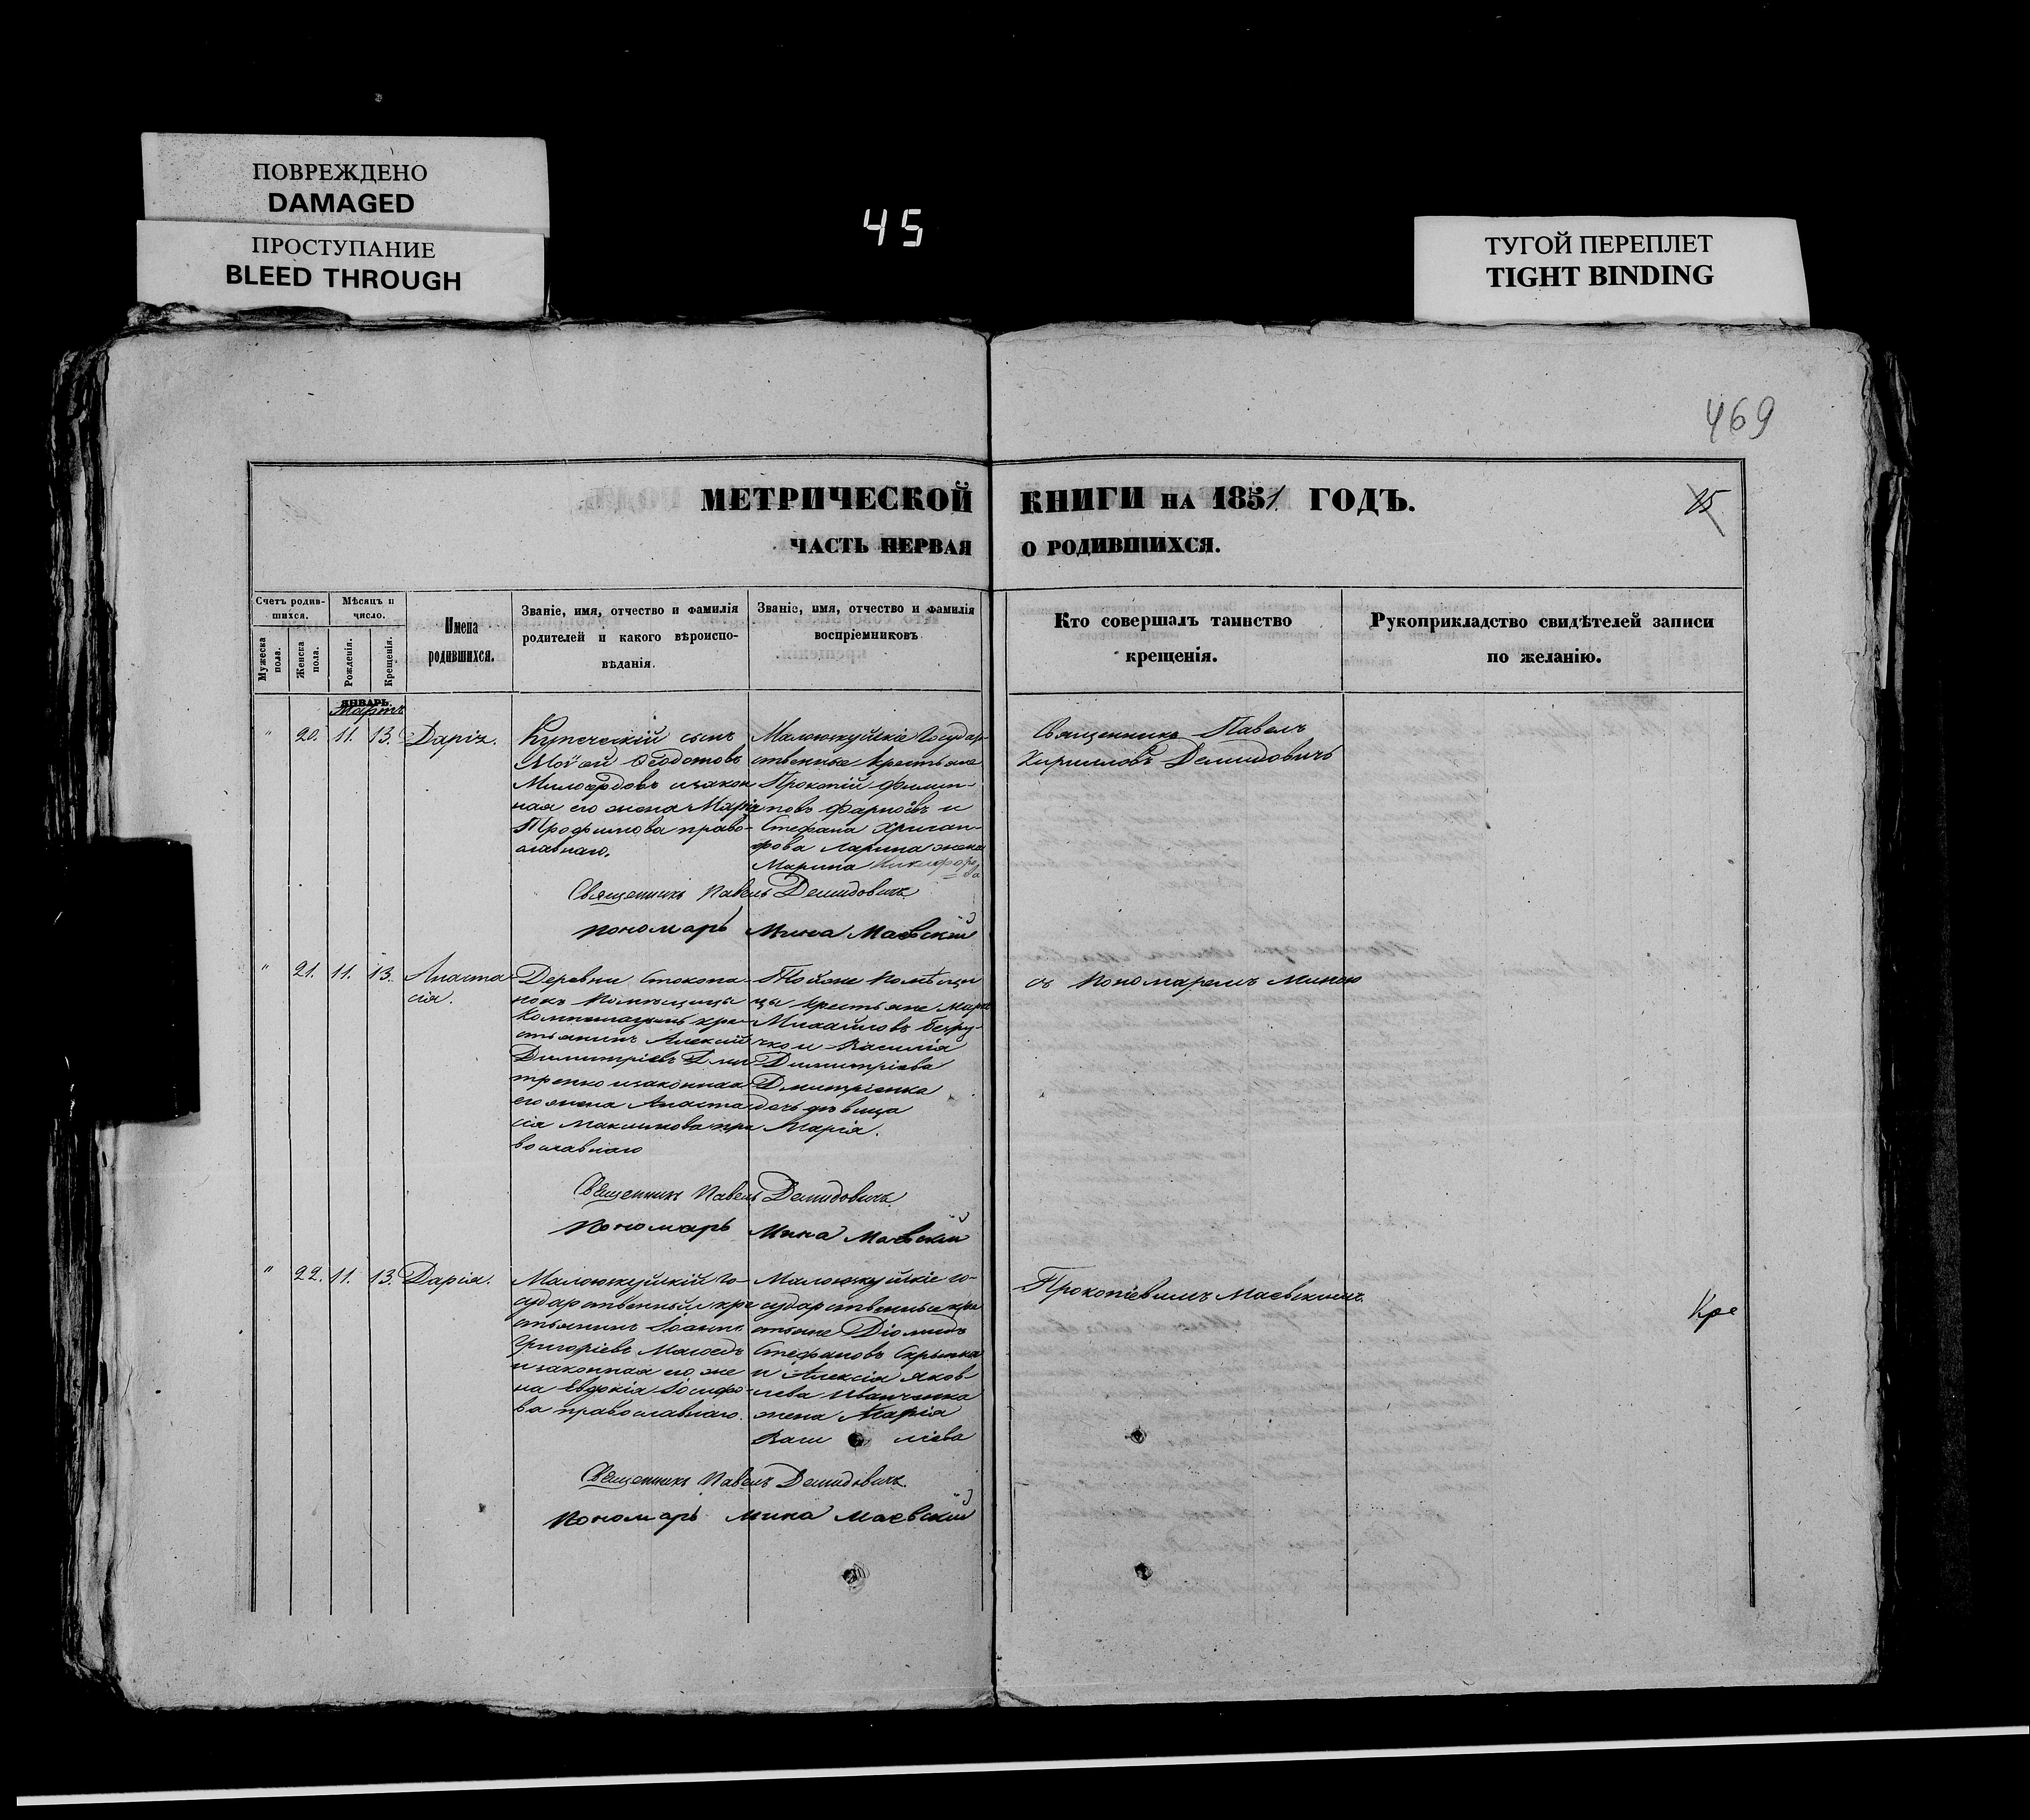 ПОВРЕЖДЕНО
DAMAGED
ПРОСТУПАНИЕ
BLEED THROUGH
45
ТУГОЙ ПЕРЕПЛЕТ
TIGHT BINDING
469
МЕТРИЧЕСКОЙ КНИГИ НА 1851 ГОДЪ.
15
ЧАСТЬ ПЕРВАЯ О РОДИВШИХСЯ.
Счетъ родив-
шихся.
Мужеска пола.
Женска пола.
Мѣсяцъ и
число.
Рожденія.
Крещенія.
Имена
родившихся.
Званіе, имя, отчество и фамилія
родителей и какого вѣроиспо-
вѣданія.
Званіе, имя, отчество и фамилія
воспріемниковъ
Кто совершалъ таинство
крещенія.
Рукоприкладство свидѣтелей записи
по желанію.
ЯНВАРЬ.
Мартъ
" 20. 11. 13. Дарія.
Купеческій сынъ
Мойсей Ѳеодотовъ
Милосердовъ изакон
ная его жена Марія
Трофимова право-
славнаго.
Государ-
ственные крестьяне
Прокопій Филип-
повъ и
Стефана
Ларина жена
Марина Никифоро
ва
Священникъ Павелъ
Кирилловъ Демидовичъ
Священникъ Павелъ Демидовичъ
Пономарь Мина Маевскій
" 21. 11. 13. Анаста
сія.
Деревни
Помѣщицы
кре-
стьянинъ Алексій
Димитріевъ Дми
тренко изаконная
его жена Анаста
сія пра
вославнаго
Тойже Помѣщи
цы крестьяне
Михайловъ
и Василія
Димитріева
Дмитріенка
дочь дѣвица
Марія.
съ Пономаремъ Миною
Священникъ Павелъ Демидовичъ
Пономарь Мина Маевскій
" 22. 11. 13. Дарія.
го-
сударственный кре
стьянинъ Іоаннъ
Григоріевъ
изаконная его же
на Евдокія Іосифо-
ва православнаго.
го-
сударственные кре
стьяне Діомидъ
Стефановъ
и Алексія Яков-
лева Иванченка
жена Марія
Васи ліева
Прокопіевымъ Маевскимъ.
Кре
Священникъ Павелъ Демидовичъ
Пономарь Мина Маевскій